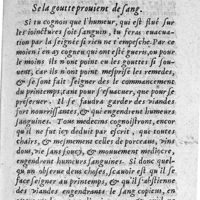 Se la goutte prouient de sang.
Si tu cognois que l'humeur, qui est flué sur
les iointures soit sanguin, tu feras euacua-
tion par la seignée si rien ne t'empesche. Par ce
moien i'en ay cogneu qui ont esté gueris, ou pour
le moins ils n'ont point eu les goutes si sou-
uent, car ils n'ont point mesprisé les remedes,
& se sont fait seigner des le commancement
du printemps, tant pour s'euacuer, que pour se
preseruer. Il se faudra garder des viandes
fort nourrissantes, & qui engendrent humeurs
sanguines. Tous medecins cognoistront, encor
qu'il ne fut icy deduit par escrit, que toutes
chairs, & mesmement celles de porceaux, vins
doux, vie sans soucy, & mouuement mediocre,
engendrent humeurs sanguines. Si donc quel-
qu'un obserue deux choses, sçauoir est qu'il se
face seigner au printemps, & qu'il s'abstienne
des viandes engendrants le sang copieux, en